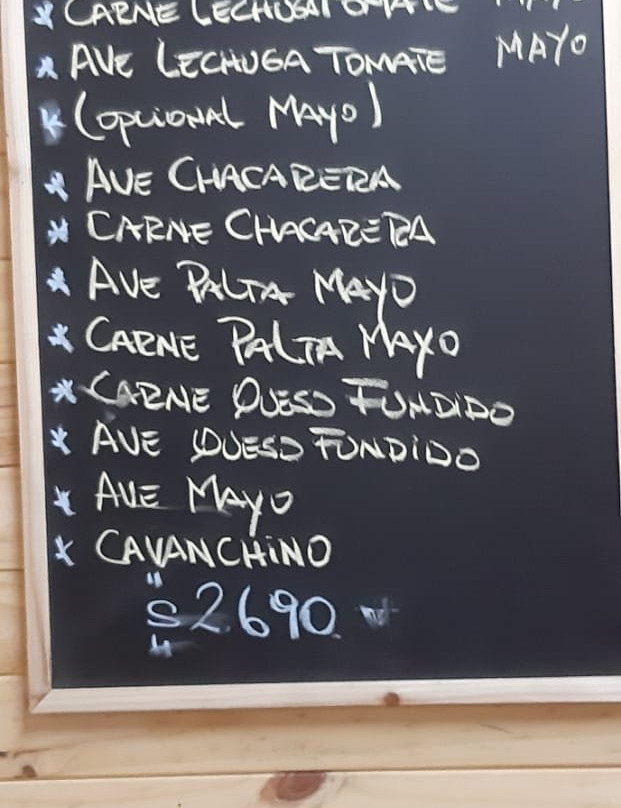 * CARNE LECHUGA TOMATE MAYO
* AVE LECHUGA TOMATE MAYO
* (OPCIONAL MAYO)
* AVE CHACARERA
* CARNE CHACARERA
* AVE PALTA MAYO
* CARNE PALTA MAYO
* CARNE QUESO FUNDIDO
* AVE QUESO FUNDIDO
* AVE MAYO
* CAVANCHINO
$2690